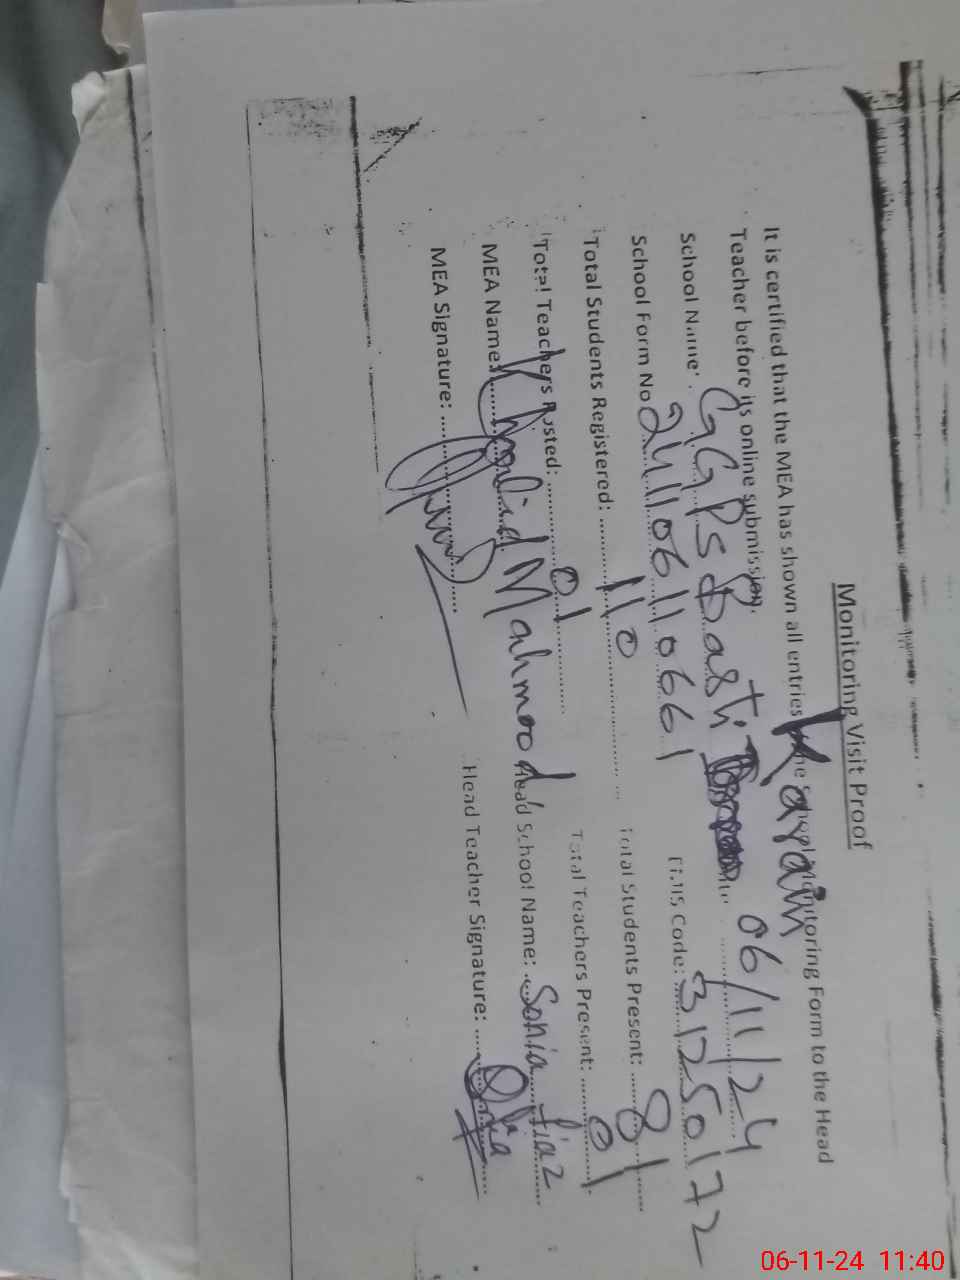 Monitoring Visit Proof
It is certified that the MEA has shown all entries the Monitoring Form to the Head
Teacher before its online submission. Karain
School Name: GGPS Basti 06/11/24
School Form No 2411061110661 EMIS Code: 31250172
Total Students Registered: 110 Total Students Present: 81
Total Teachers Posted: 01 Total Teachers Present: 01
MEA Name: Khalid Mahmood Head School Name: Sonia Fiaz
MEA Signature: Head Teacher Signature:
06-11-24 11:40